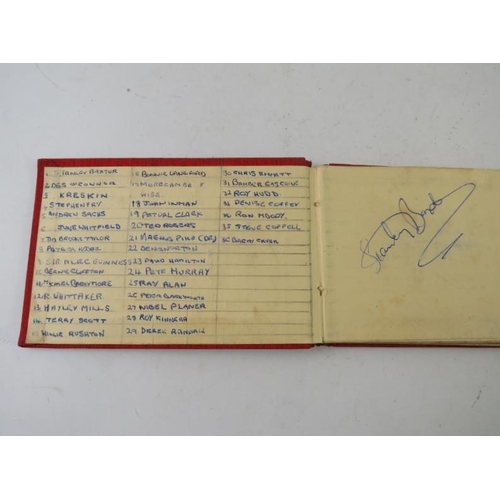 1 STANLEY BAXTER
2 DES O'CONNOR
3 KRESKIN
4 STEPHEN FRY
5 ANDREW SACHS
6 JUNE WHITFIELD
9 SIR ALEC GUINNESS
12 R. WHITTAKER
13 HAYLEY MILLS
14 TERRY SCOTT
15 WILLIE RUSHTON
16 BONNIE LANGFORD
17 MORECAMBE &
WISE
18 JOHN INMAN
19 PETUAL CLARK
20 TED ROGERS
21 MAGNUS PIKE (DR)
22
23 DAVID HAMILTON
24 PETE MURRAY
25 RAY ALAN
26
27 NIGEL PLANER
28 ROY KINNEAR
29 DEREK
30 CHRIS
31 BAMBER GASCOINE
32 ROY HUDD
33 DENISE COFFEY
34 RON MOODY
35 STEVE COPPELL
36
Stanley Baxter